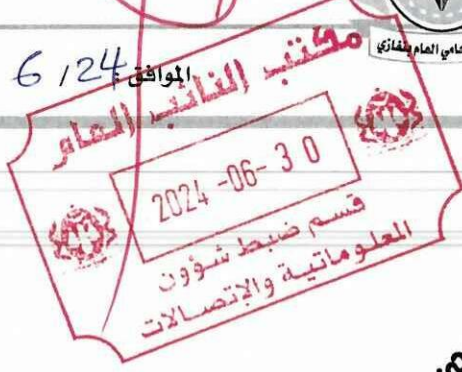 المحامي العام بنغازي
الموافق: 24/ 6
مكتب النائب العام
2024 -06- 3 0
قسم ضبط شؤون
المعلوماتية والإتصالات